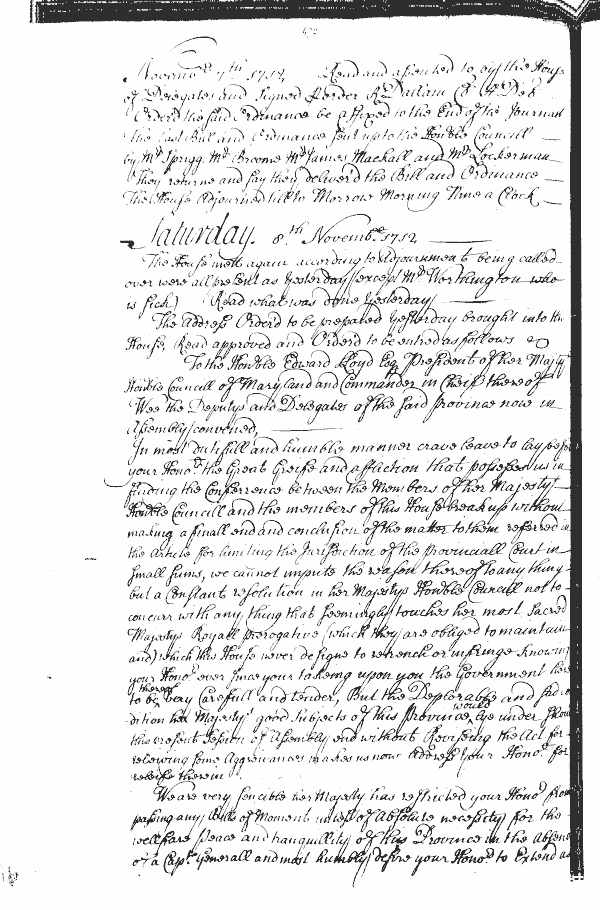 Novemb.r 7th 1712, Read and assented to by the House
of Delegates and Signed p order R Dallam Cl
Order'd the said Ordinance be affixed to the End of the Journall
the last Bill and Ordinance sent up to the Honble Councill
by Mr Sprigg Mr Broome Mr James Mackall and Mr Lockerman
They returne and say they deliver'd the Bill and Ordinance
The House Adjourned till to Morrow Morning Nine a Clock
Saturday. 8.th Novemb.r 1712
The House mett again according to Adjournment being called
over were all present as Yesterday (except Mr Worthington who
is sick) Read what was done Yesterday
The Address Order'd to be prepared Yesterday brought into the
House, Read approved and Order'd to be entred as follows
To the Honble Edward Lloyd Esq President of her Majtys
Honble Councill of Maryland and Commander in Cheif thereof
Wee the Deputys and Delegates of the said Province now in
Assembly convened,
In most dutifull and humble manner crave leave to lay before
your Hono.r the Great Greife and affliction that possesses us in
finding the Conferrence between the Members of her Majestys
Honble Councill and the members of this House break up without
making a finall end and conclusion of the matter to them referred in
the Article for limiting the Jurisdiction of the Provinciall Court in
small sums, we cannot impute the reason thereof to any thing
but a Constant resolution in her Majestys Honble Councill not to
concurr with any thing that seemingly touches her most Sacred
Majestys Royall prerogative (which they are obliged to maintain
and) which this House never designe to retrench or infringe knowing
your Hono.r ever since your takeing upon you the Government here
thereof
to be very Carefull and tender, But the Deplorable and
would
dition her Majestys good subjects of this Province lye under should
this present Session of Assembly end without Reviseing the Act for
releiving some Aggreivances makes us now Address your Hono.r for
releife therein
We are very sencible her Majesty has restricted your Hono.r from
passing any Bills of Moment unless of Absolute necessity for the
wellfare peace and tranquillity of this Province in the Absence
of a Capt. Generall and most humbly desire your Hono.r to Extend as